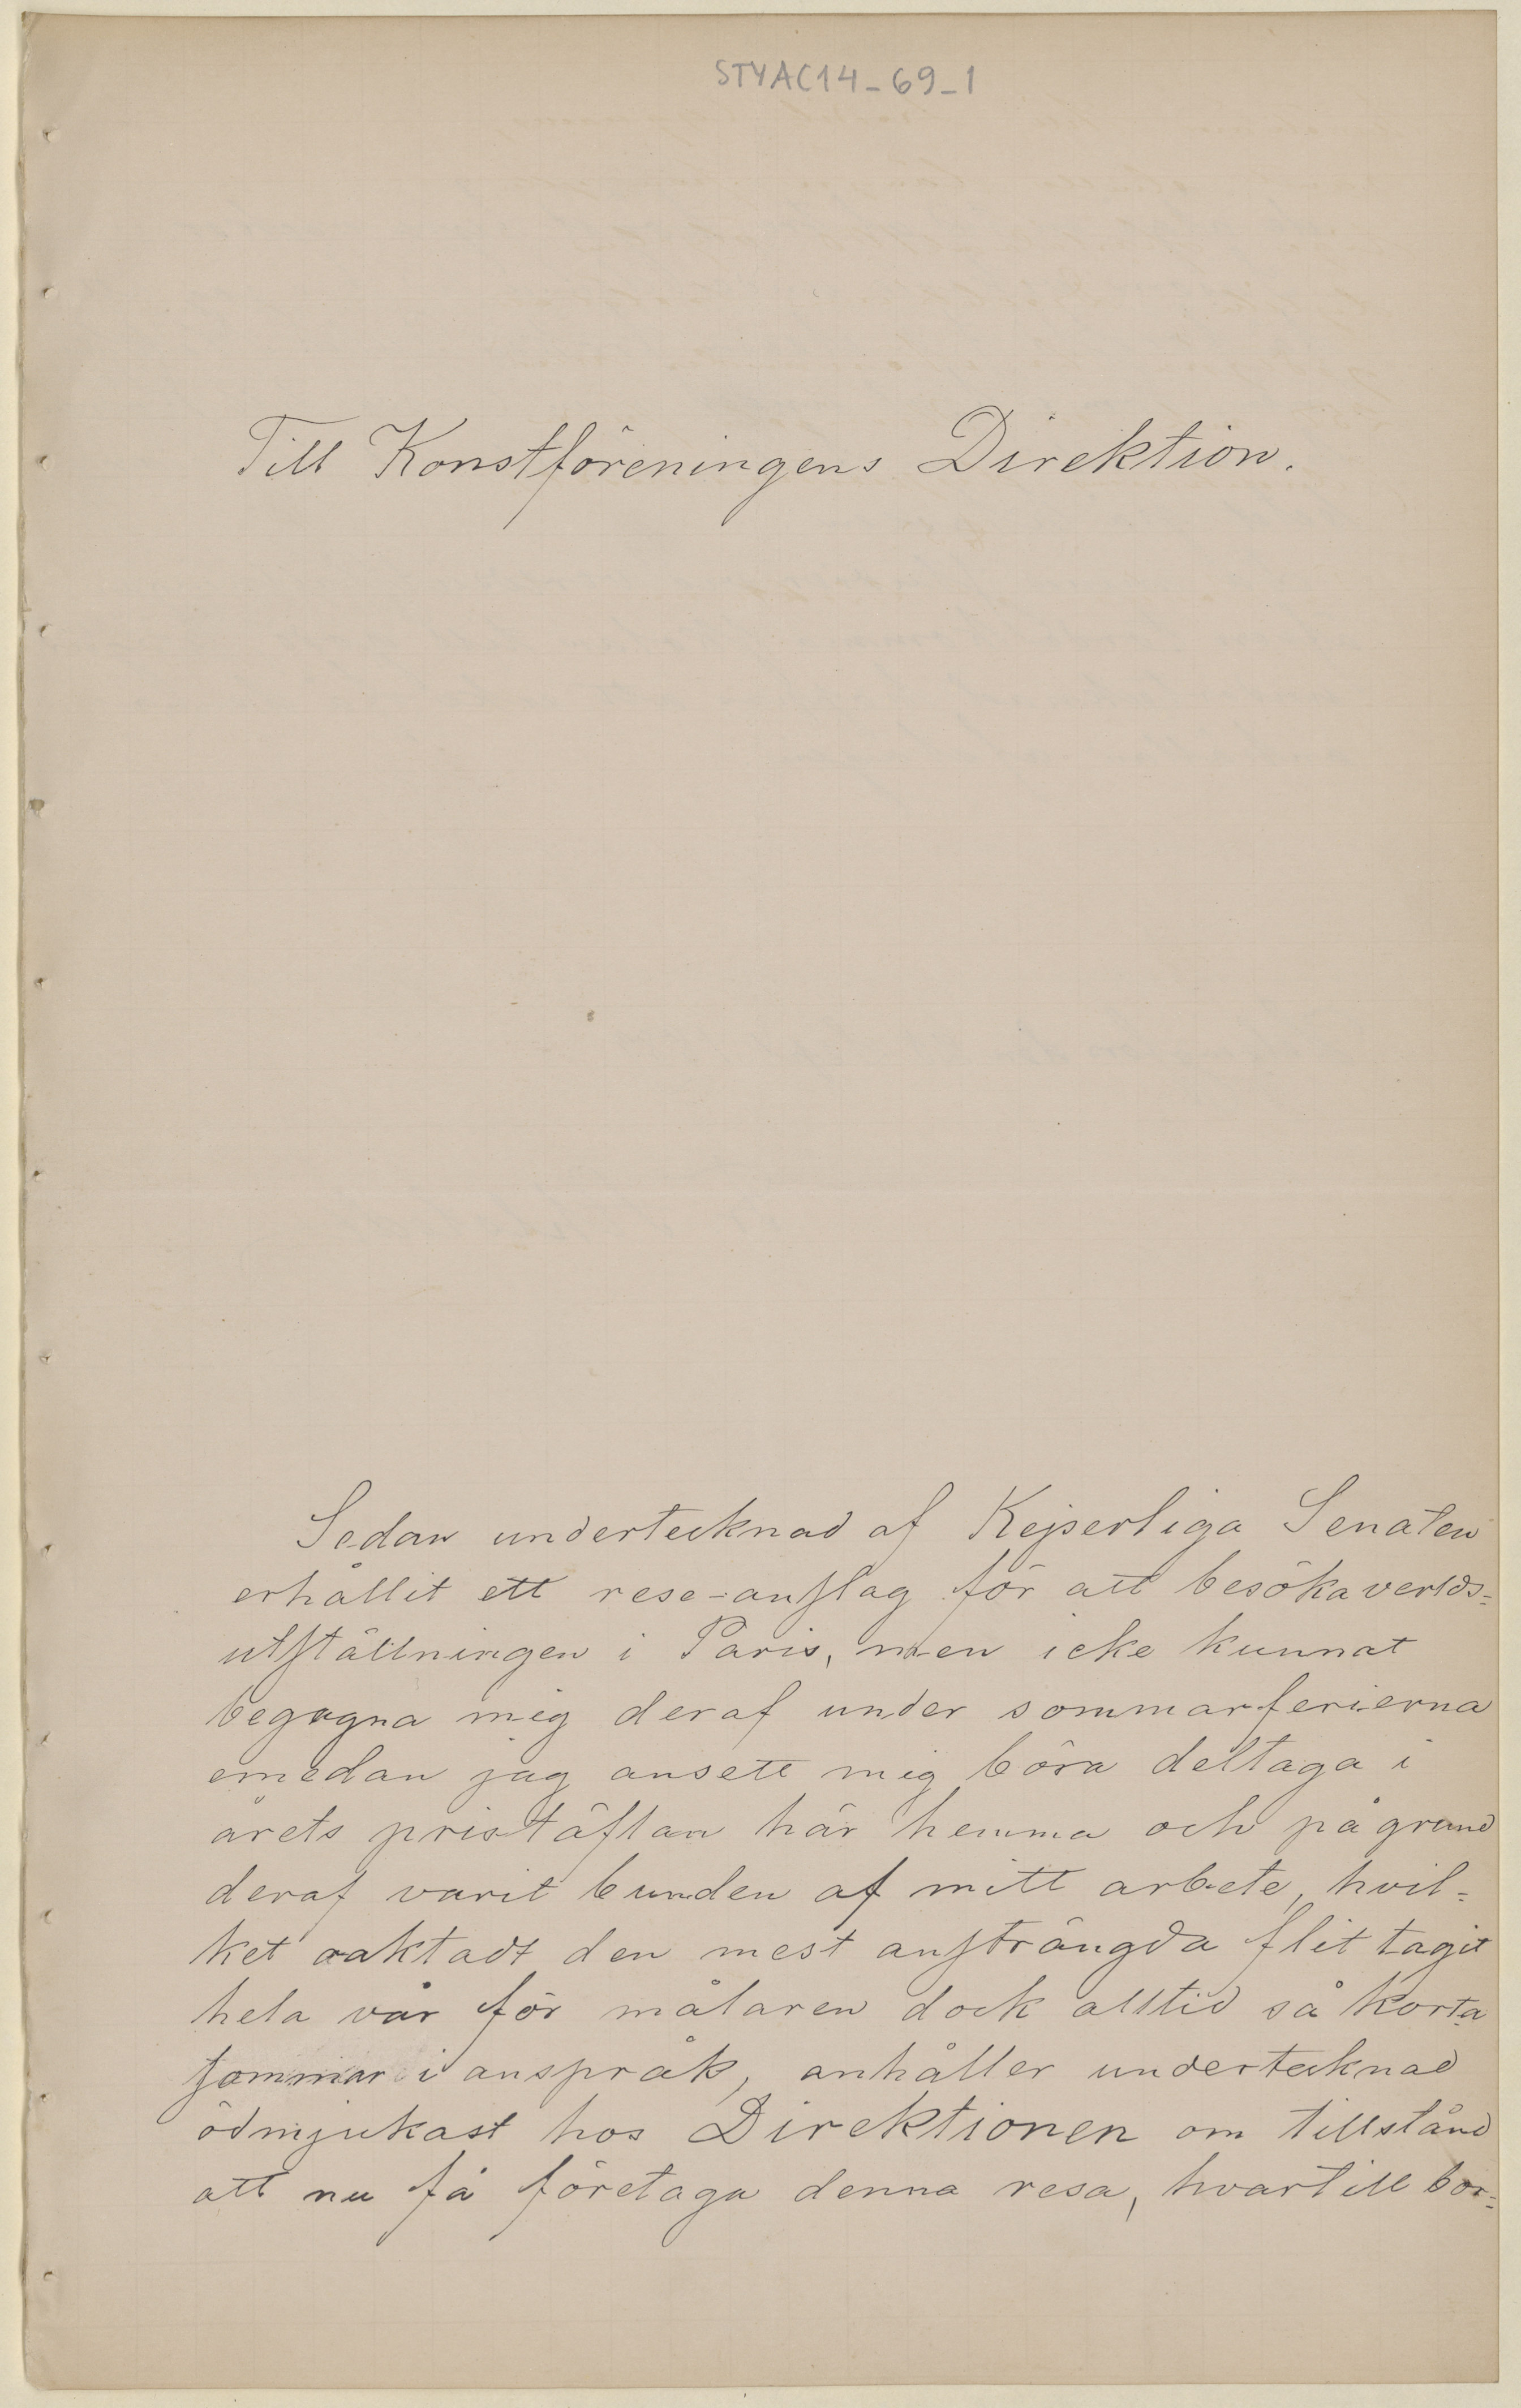 STYAC14-69-1
Till Konstföreningens Direktion.
Sedan undertecknad af Kejserliga Senaten
erhållit ett rese-anslag för att besöka verlds-
utställningen i Paris, men icke kunnat
begagna mig deraf under sommarferierna
emedan jag ansett mig böra deltaga i
årets pristäflan här hemma och på grund
deraf varit bunden af mitt arbete, hvil-
ket oaktadt den mest ansträngda flit tagit
hela vår för målaren dock alltid så korta
sommar i anspråk, anhåller undertecknad
ödmjukast hos Direktionen om tillstånd
att nu få företaga denna resa, hvartill bor-